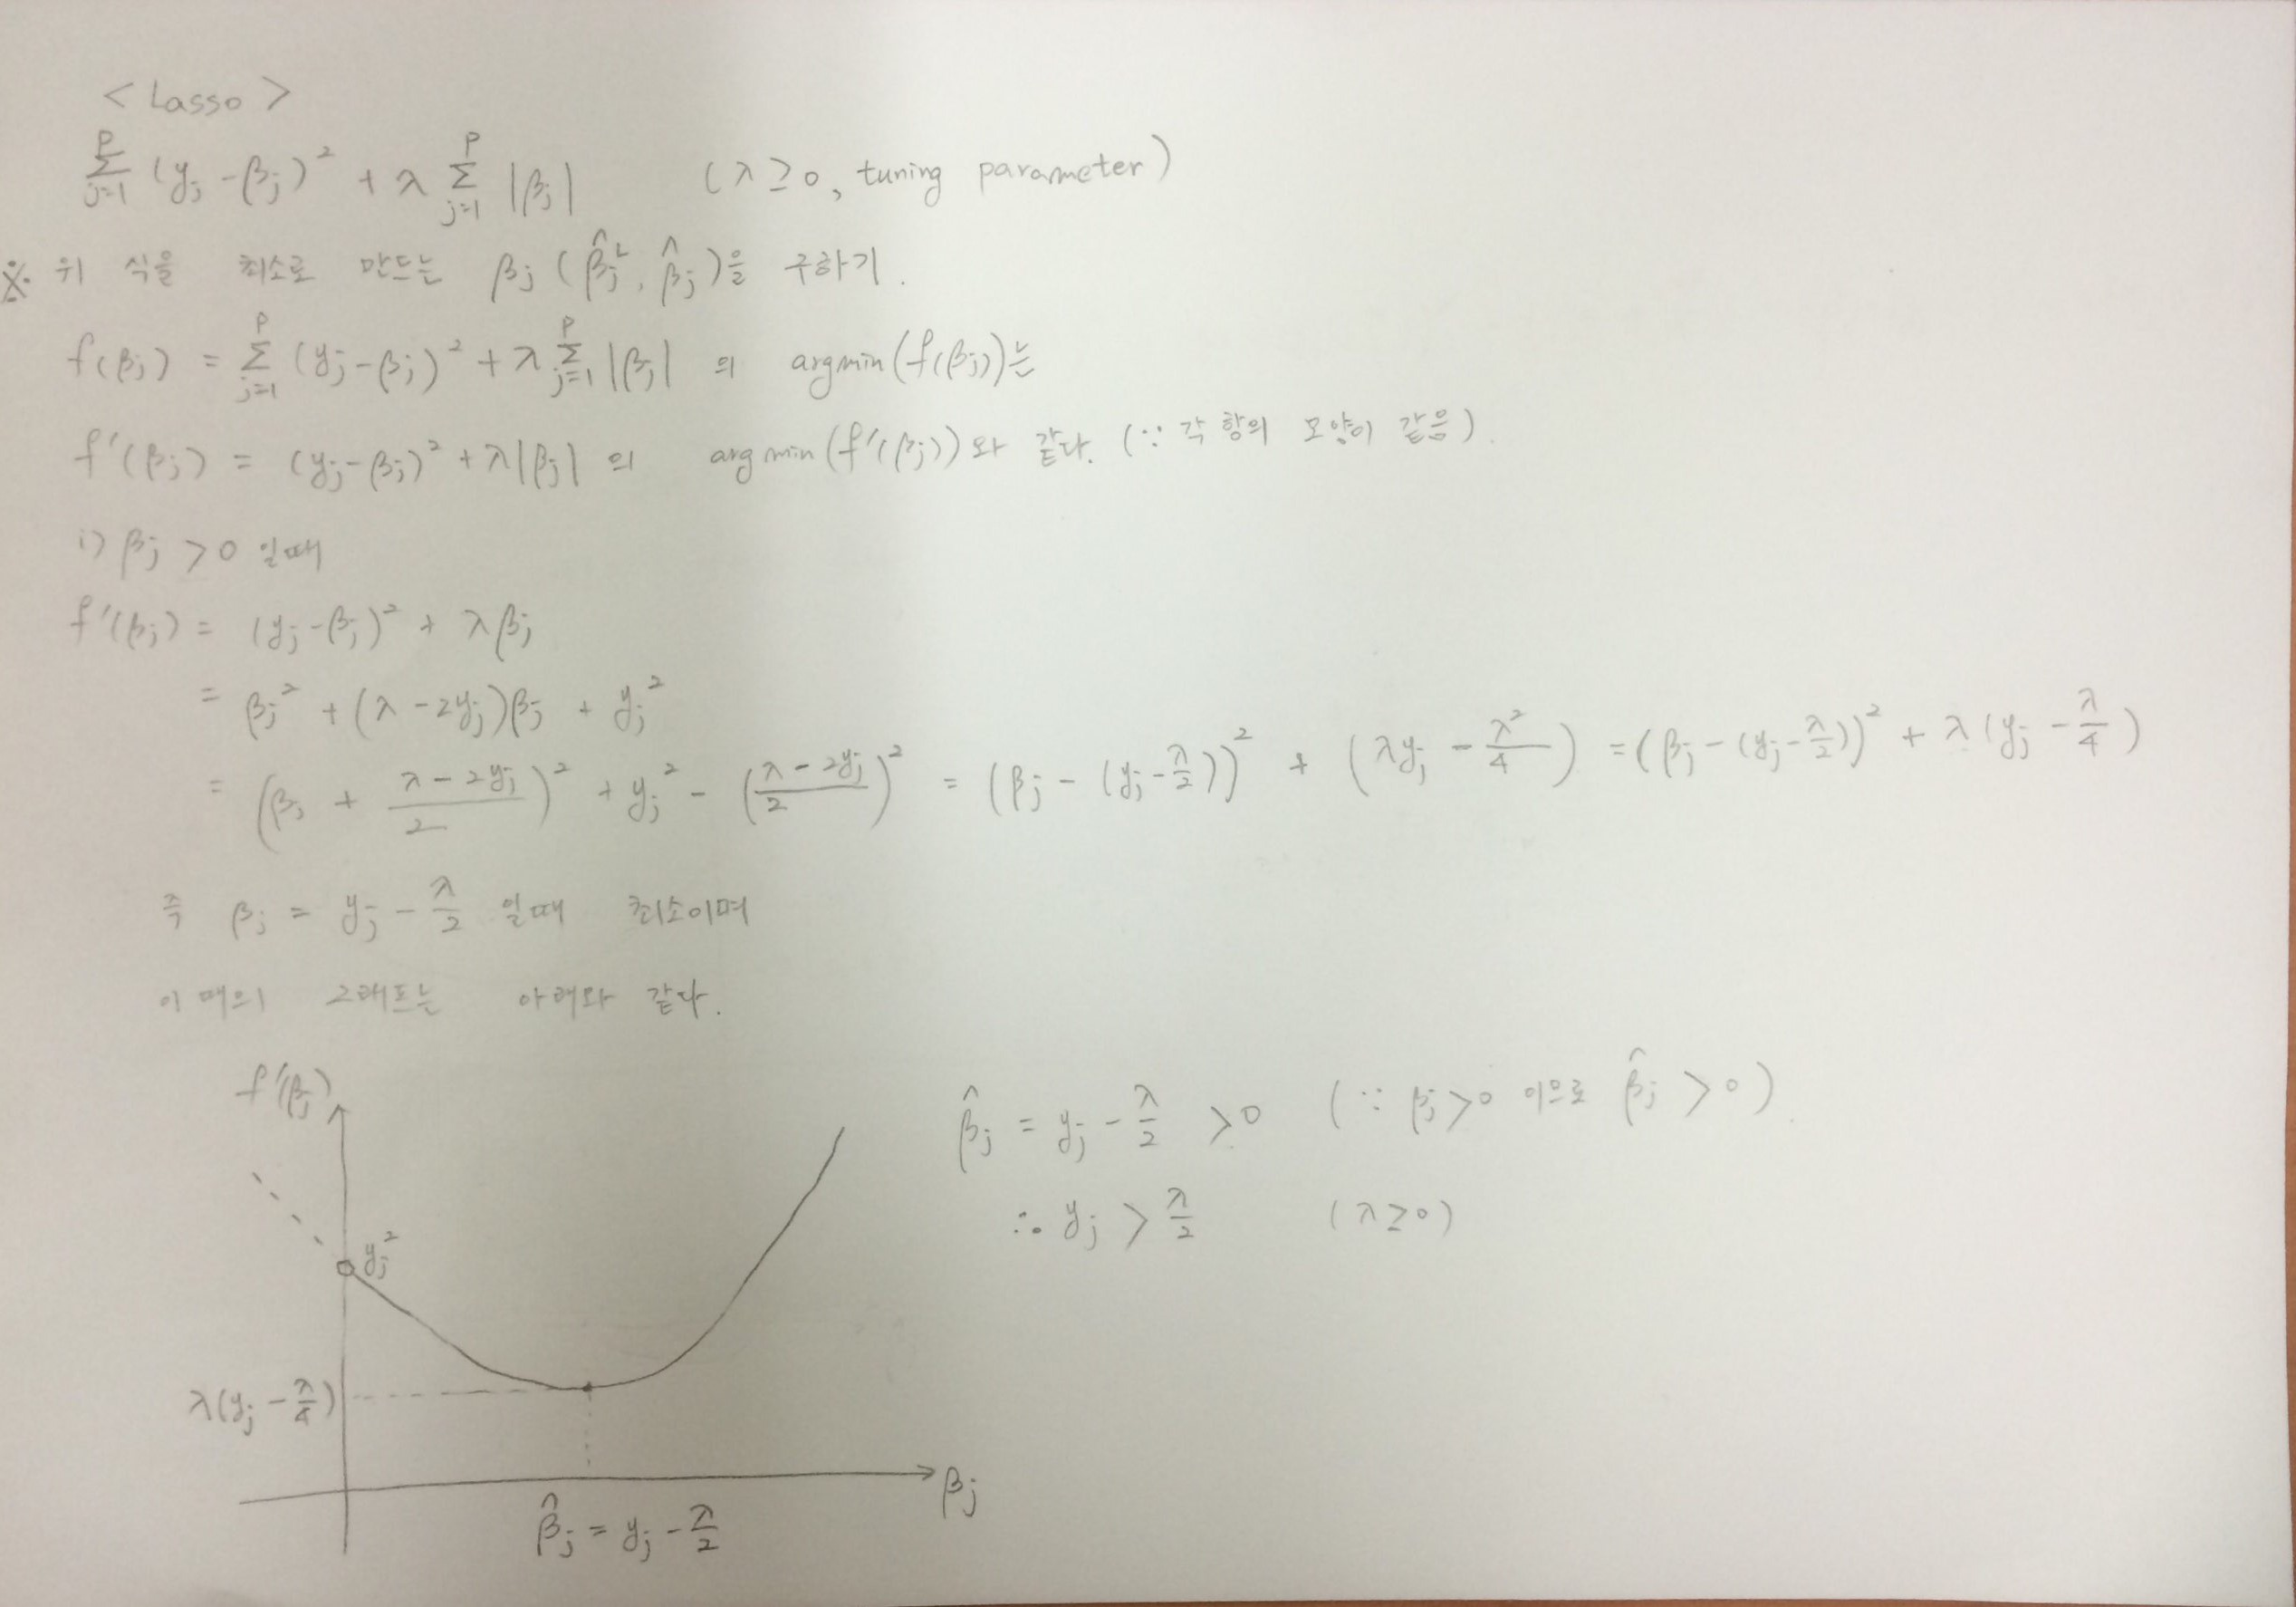 < Lasso >
∑_{j=1}^{p} (y_j - β_j)² + λ ∑_{j=1}^{p} |β_j| (λ ≥ 0, tuning parameter)
※ 위 식을 최소로 만드는 β_j (β̂_j^L, β̂_j)을 구하기.
f(β_j) = ∑_{j=1}^{p} (y_j - β_j)² + λ ∑_{j=1}^{p} |β_j| 의 argmin(f(β_j))는
f'(β_j) = (y_j - β_j)² + λ|β_j| 의 argmin(f'(β_j))와 같다. (∵ 각 항의 모양이 같음).
i) β_j > 0 일때
f'(β_j) = (y_j - β_j)² + λβ_j
= β_j² + (λ - 2y_j)β_j + y_j²
= (β_j + (λ - 2y_j)/2)² + y_j² - ((λ - 2y_j)/2)² = (β_j - (y_j - λ/2))² + (λy_j - λ²/4) = (β_j - (y_j - λ/2))² + λ(y_j - λ/4)
즉 β_j = y_j - λ/2 일때 최소이며
이 때의 그래프는 아래와 같다.
f'(β_j)
β̂_j = y_j - λ/2 > 0 (∵ β_j > 0 이므로 β̂_j > 0).
∴ y_j > λ/2 (λ ≥ 0)
y_j²
λ(y_j - λ/4)
β_j
β̂_j = y_j - λ/2